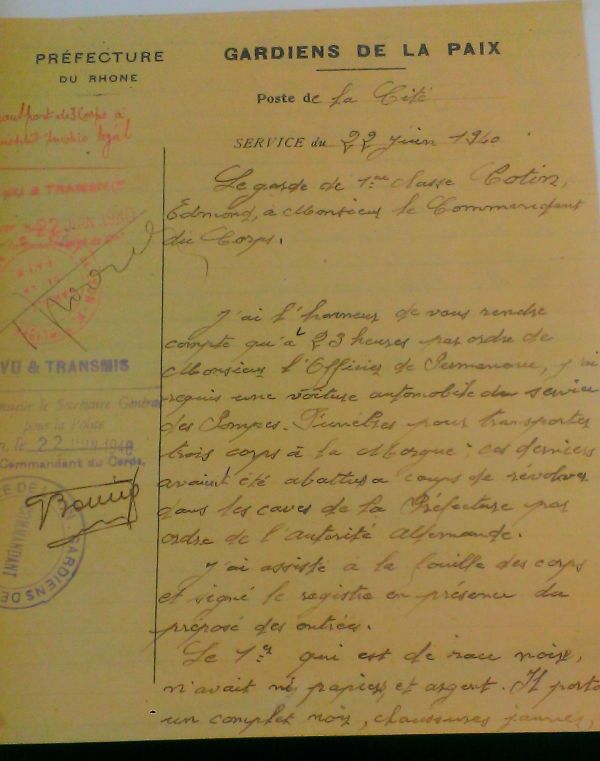 PRÉFECTURE
DU RHONE
GARDIENS DE LA PAIX
Poste de La Cité
SERVICE du 22 juin 1940
Le garde de 1ère classe Cotin,
Edmond, à Monsieur le Commandant
du Corps.
J'ai l'honneur de vous rendre
compte qu'à 23 heures par ordre de
Monsieur l'Officier de Permanence, j'ai
requis une voiture automobile du service
des Pompes-Funèbres pour transporter
trois corps à la Morgue; ces derniers
avaient été abattus a coups de révolver
dans les caves de la Préfecture par
ordre de l'Autorité Allemande.
J'ai assisté a la fouille des corps
et signé le registre en présence du
préposé des entrées.
Le 1er qui est de race noire,
n'avait ni papiers et argent. Il porta
un complet noir, chaussures jaunes,
3 Corps à
légal
VU & TRANSMIS
22 JUIN 1940
VU & TRANSMIS
le Secrétaire Général
pour la Police
le 22 JUIN 1940
Commandant du Corps,
GARDIENS DE
COMMANDANT